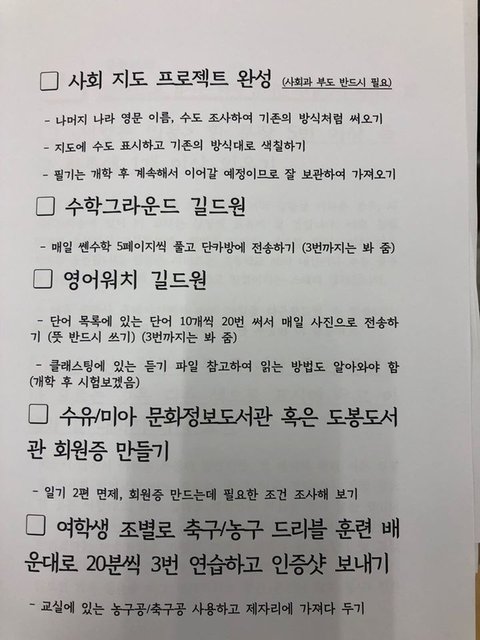 □ 사회 지도 프로젝트 완성 (사회과 부도 반드시 필요)
- 나머지 나라 영문 이름, 수도 조사하여 기존의 방식처럼 써오기
- 지도에 수도 표시하고 기존의 방식대로 색칠하기
- 필기는 개학 후 계속해서 이어갈 예정이므로 잘 보관하여 가져오기
□ 수학그라운드 길드원
- 매일 쎈수학 5페이지씩 풀고 단카방에 전송하기 (3번까지는 봐 줌)
□ 영어워치 길드원
- 단어 목록에 있는 단어 10개씩 20번 써서 매일 사진으로 전송하
기 (뜻 반드시 쓰기) (3번까지는 봐 줌)
- 클래스팅에 있는 듣기 파일 참고하여 읽는 방법도 알아와야 함
(개학 후 시험보겠음)
□ 수유/미아 문화정보도서관 혹은 도봉도서
관 회원증 만들기
- 일기 2편 면제, 회원증 만드는데 필요한 조건 조사해 보기
□ 여학생 조별로 축구/농구 드리블 훈련 배
운대로 20분씩 3번 연습하고 인증샷 보내기
- 교실에 있는 농구공/축구공 사용하고 제자리에 가져다 두기